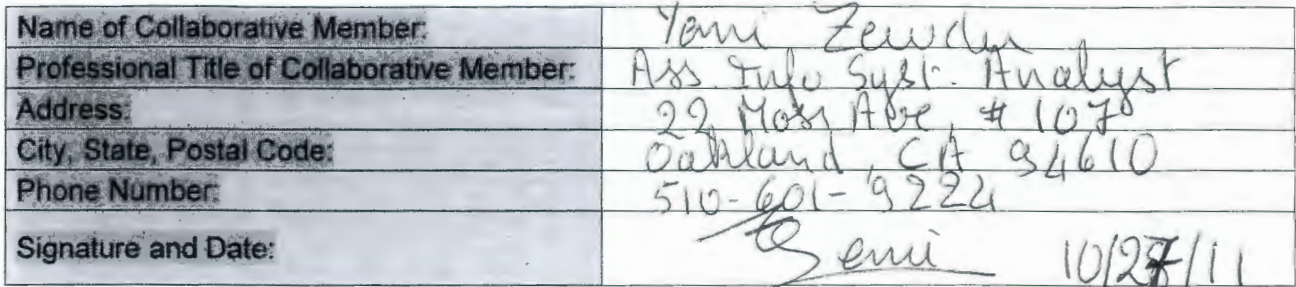 Name of Collaborative Member: Yemi Zewdu
Professional Title of Collaborative Member: Ass. Info Syst. Analyst
Address: 22 Moss Ave, # 107
City, State, Postal Code: Oakland, CA 94610
Phone Number: 510-601-9224
Signature and Date: Yemi 10/27/11